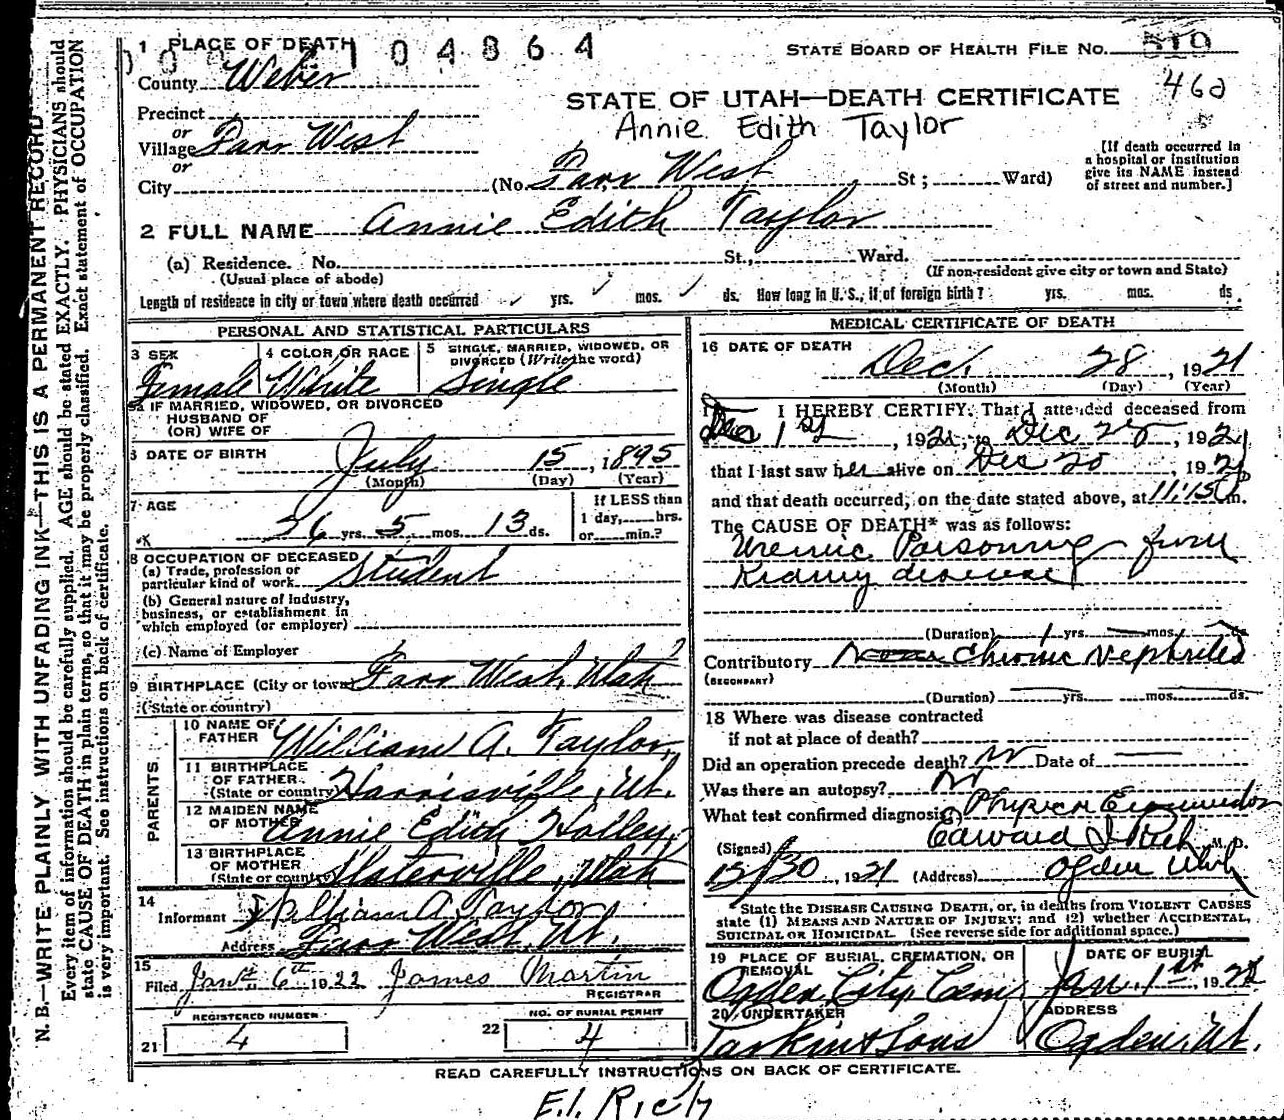 N. B.—WRITE PLAINLY WITH UNFADING INK—THIS IS A PERMANENT RECORD
Every item of information should be carefully supplied. AGE should be stated EXACTLY. PHYSICIANS should
state CAUSE OF DEATH in plain terms, so that it may be properly classified. Exact statement of OCCUPATION
is very important. See instructions on back of certificate.
1 PLACE OF DEATH
104864
STATE BOARD OF HEALTH FILE No. 510
County Weber
460
STATE OF UTAH—DEATH CERTIFICATE
Annie Edith Taylor
Precinct
or
Village Farr West
or
City (No. Farr West St; Ward)
[If death occurred in
a hospital or institution
give its NAME instead
of street and number.]
2 FULL NAME Annie Edith Taylor
(a) Residence. No. St., Ward.
(Usual place of abode) (If non-resident give city or town and State)
Length of residence in city or town where death occurred yrs. mos. ds. How long in U. S., if of foreign birth? yrs. mos. ds.
PERSONAL AND STATISTICAL PARTICULARS
3 SEX Female
4 COLOR OR RACE White
5 SINGLE, MARRIED, WIDOWED, OR
DIVORCED (Write the word)
Single
5a IF MARRIED, WIDOWED, OR DIVORCED
HUSBAND OF
(OR) WIFE OF
6 DATE OF BIRTH July 15, 1895
(Month) (Day) (Year)
7 AGE
26 yrs. 5 mos. 13 ds.
If LESS than
1 day, hrs.
or min.?
8 OCCUPATION OF DECEASED
(a) Trade, profession or
particular kind of work Student
(b) General nature of industry,
business, or establishment in
which employed (or employer)
(c) Name of Employer
9 BIRTHPLACE (City or town) Farr West, Utah
(State or country)
PARENTS
10 NAME OF
FATHER William A. Taylor
11 BIRTHPLACE
OF FATHER
(State or country) Harrisville, Ut.
12 MAIDEN NAME
OF MOTHER Annie Edith Holley
13 BIRTHPLACE
OF MOTHER
(State or country) Slaterville, Utah
14
Informant William A Taylor
Address Farr West, Ut.
15
Filed Jan 6th 1922 James Martin
REGISTRAR
REGISTERED NUMBER
21 4
NO. OF BURIAL PERMIT
22 4
MEDICAL CERTIFICATE OF DEATH
16 DATE OF DEATH
Dec. 28, 1921
(Month) (Day) (Year)
17 I HEREBY CERTIFY, That I attended deceased from
Dec 1st, 1921, to Dec 28, 1921
that I last saw her alive on Dec 20 1921
and that death occurred, on the date stated above, at 11:15 P m.
The CAUSE OF DEATH* was as follows:
Uremic Poisoning from
Kidney disease
(Duration) 1 yrs. mos. ds.
Contributory Chronic Nephritis
(SECONDARY)
(Duration) yrs. mos. ds.
18 Where was disease contracted
if not at place of death?
Did an operation precede death? no Date of
Was there an autopsy? no
What test confirmed diagnosis? Physical Examination
(Signed) Edward I Rich M. D.
12/30, 1921 (Address) Ogden Utah
State the DISEASE CAUSING DEATH, or, in deaths from VIOLENT CAUSES
state (1) MEANS AND NATURE OF INJURY; and (2) whether ACCIDENTAL,
SUICIDAL OR HOMICIDAL. (See reverse side for additional space.)
19 PLACE OF BURIAL, CREMATION, OR
REMOVAL
Ogden City Cem.
DATE OF BURIAL
Jan. 1st, 1922
20 UNDERTAKER
Larkin & Sons
ADDRESS
Ogden, Ut.
READ CAREFULLY INSTRUCTIONS ON BACK OF CERTIFICATE.
E.I. Rich